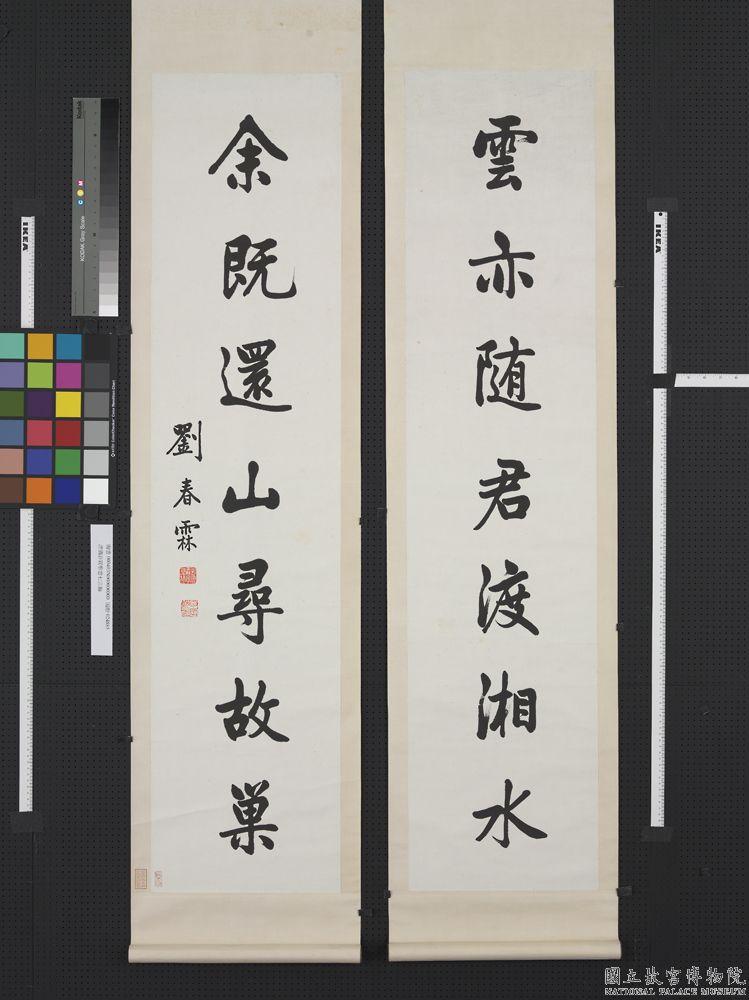 雲亦随君渡湘水
余既還山尋故巢
劉春霖
Kodak
KODAK Gray Scale
C Y M
IKEA
IKEA
國立故宮博物院
NATIONAL PALACE MUSEUM